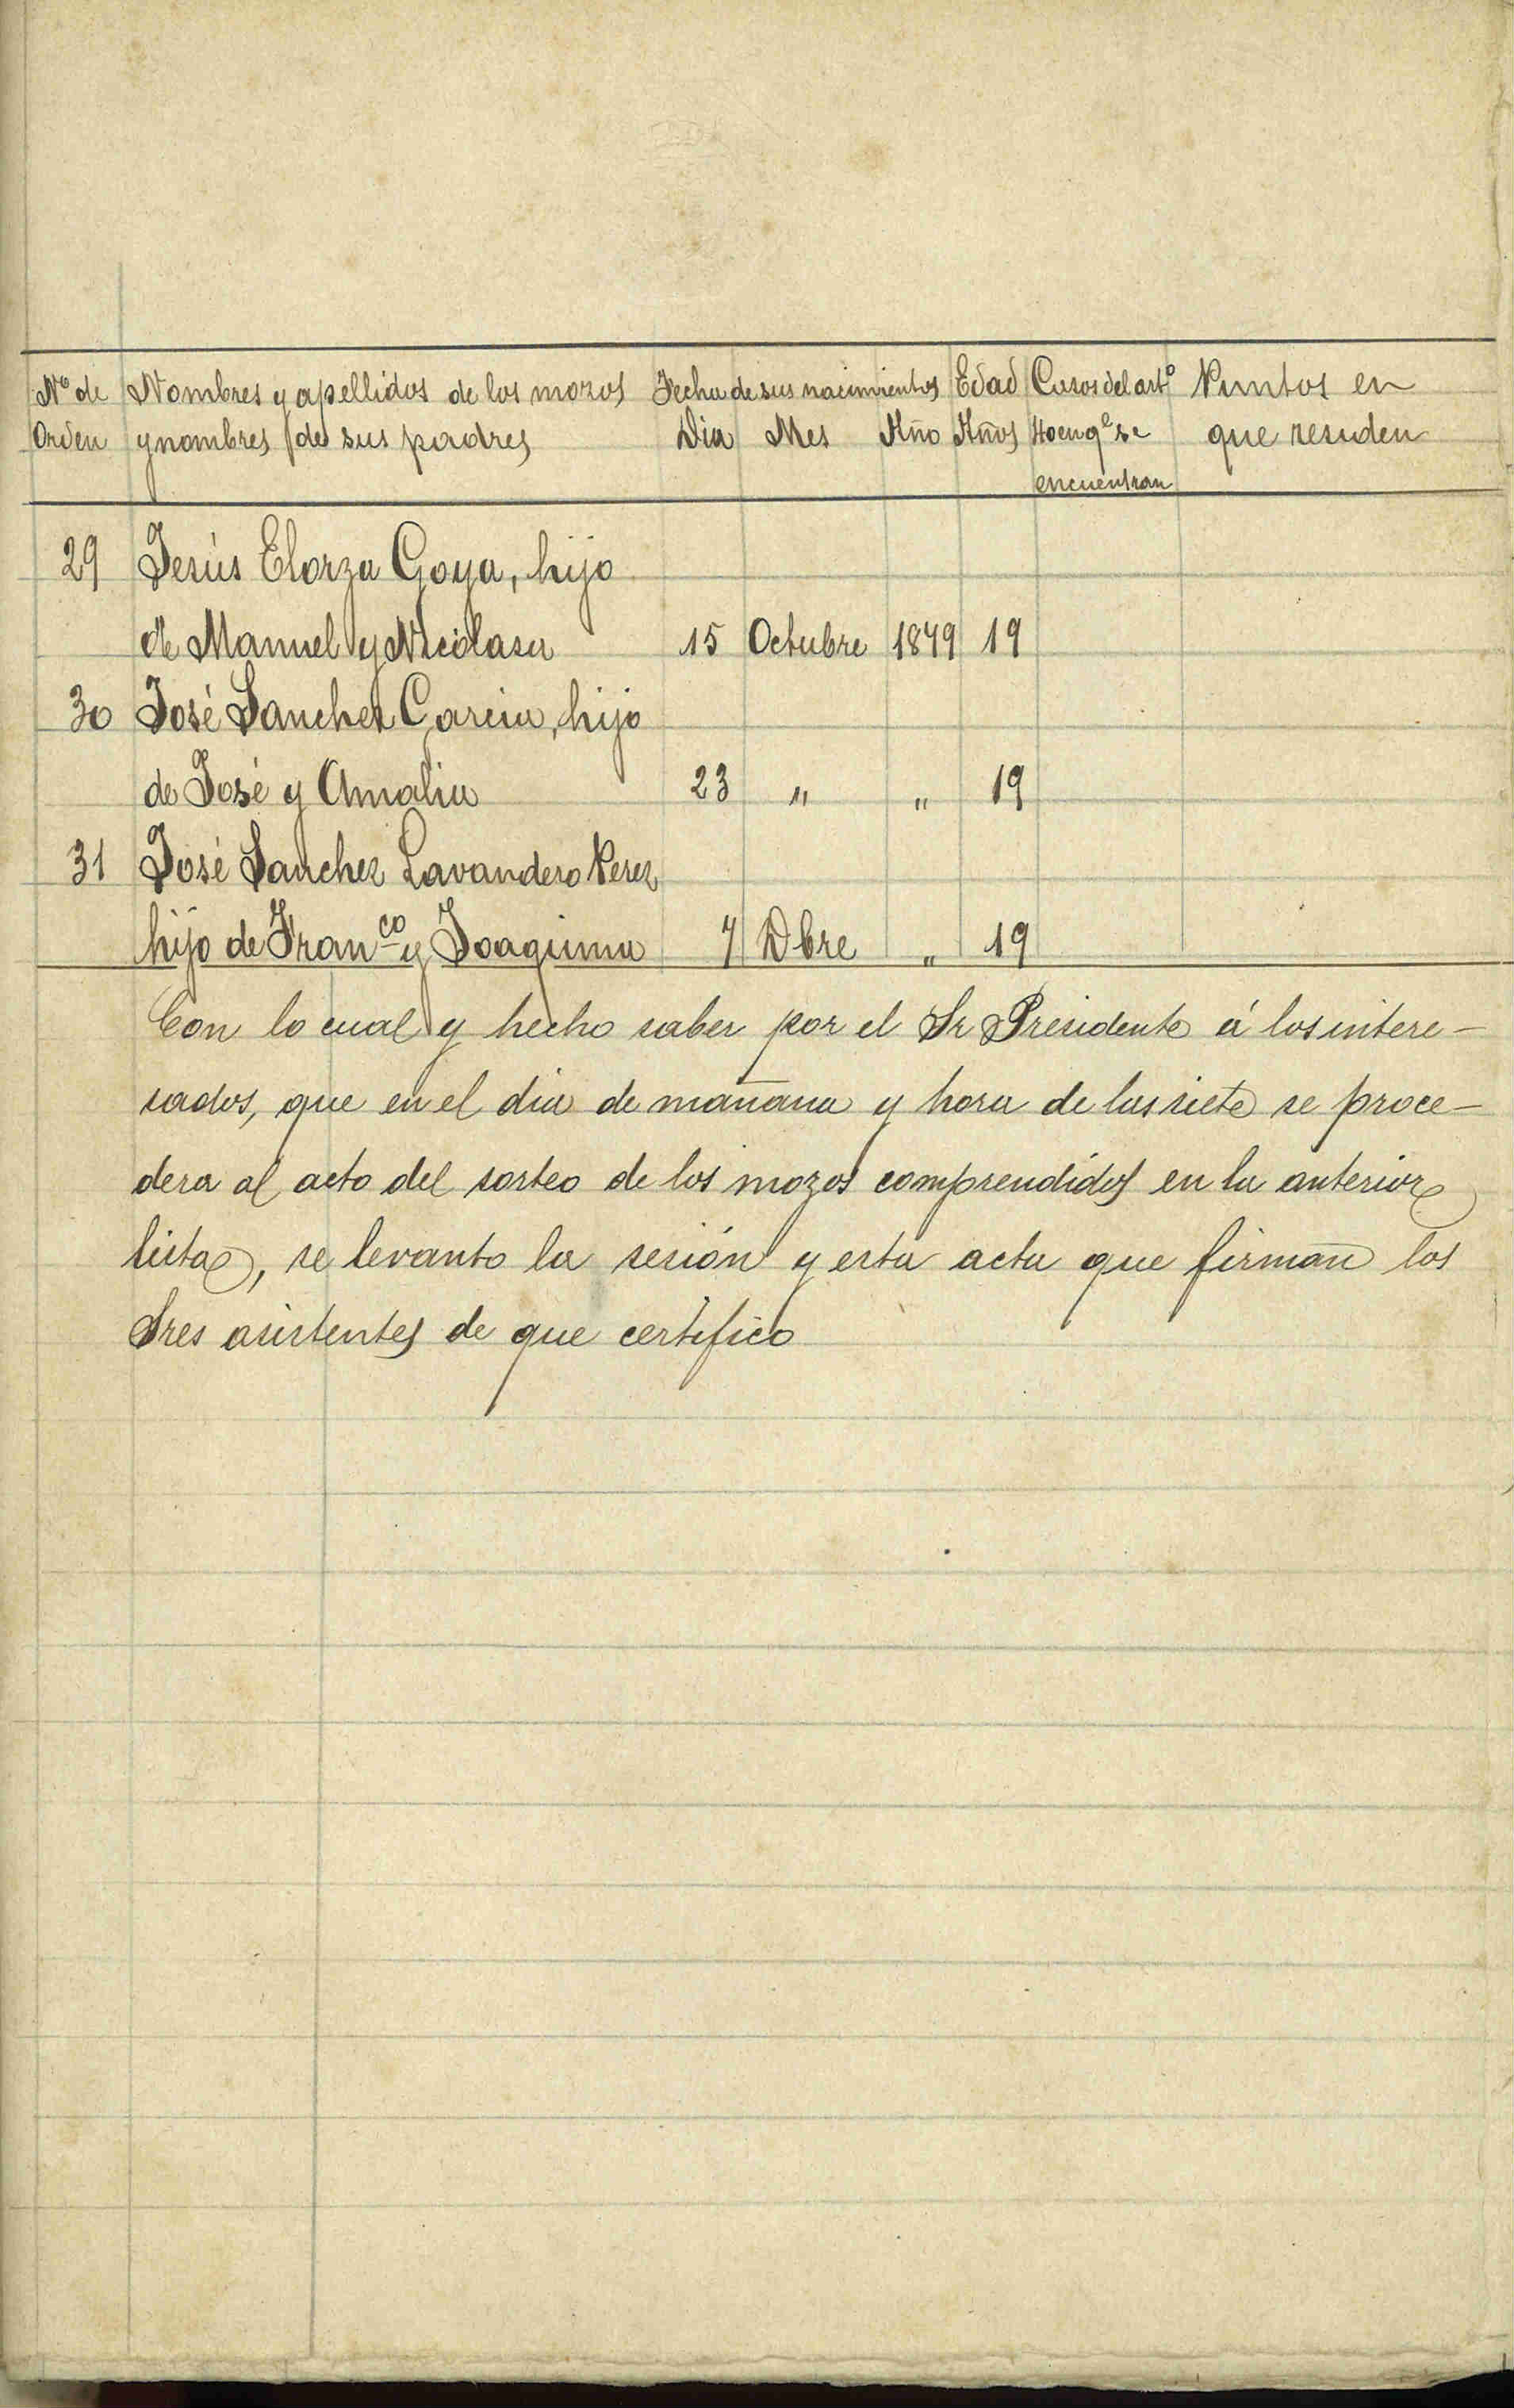 Nº de Nombres y apellidos de los mozos Fecha de sus nacimientos Edad Casos del artº Puntos en
Orden y nombres de sus padres Dia Mes Año Años 40 en qᵉ se que residen
encuentran
29 Jesús Elorza Goya, hijo
de Manuel y Nicolasa 15 Octubre 1879 19
30 José Sanchez Garcia, hijo
de José y Amalia 23 " " 19
31 José Sanchez Lavandero Perez
hijo de Franco y Joaquina 7 Dbre " 19
Con lo cual y hecho saber por el Sr Presidente á los intere-
sados, que en el dia de mañana y hora de las siete se proce-
dera al acto del sorteo de los mozos comprendidos en la anterior
lista, se levanto la sesión y esta acta que firman los
Sres asistentes de que certifico